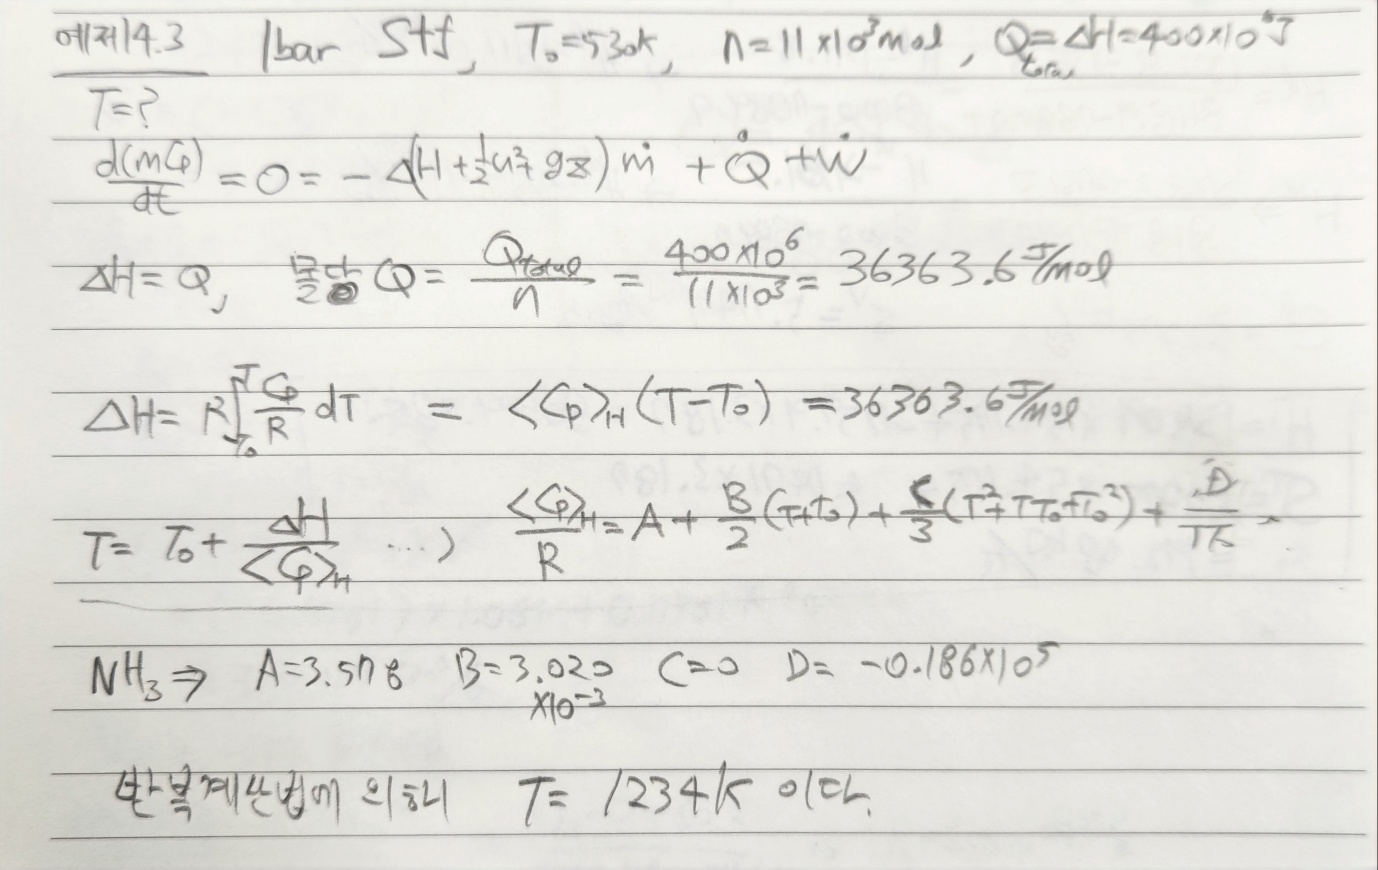 예제14.3 1bar Stf, T₀=530K, n=11×10³mol, Q=ΔH=400×10⁶J
total
T=?
d(mCp)/dt = 0 = -Δ(H+½u²+gz)ṁ + Q̇ + Ẇ
ΔH=Q, 몰당 Q= Qtotal/n = 400×10⁶/11×10³ = 36363.6 J/mol
ΔH= R∫_{T₀}^{T} Cp/R dT = <Cp>H (T-T₀) =36363.6 J/mol
T= T₀+ ΔH/<Cp>H ...) <Cp>H/R = A+ B/2 (T+T₀) + C/3 (T²+TT₀+T₀²) + D/TT₀.
NH₃⇒ A=3.578 B=3.020 C=0 D= -0.186×10⁵
×10⁻³
반복계산법에 의해 T= 1234K 이다.